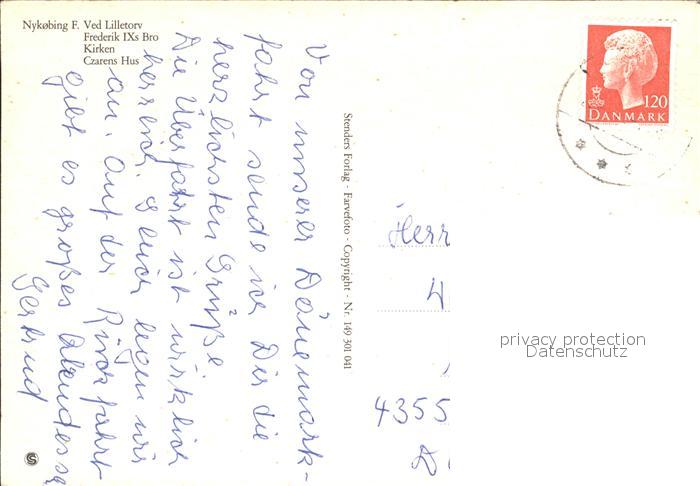 Nykøbing F. Ved Lilletorv
Frederik IXs Bro
Kirken
Czarens Hus
Von unserer Dänemark-
fahrt sende ich Dir die
herzlichsten Grüße
Die Überfahrt ist wirklich
herrlich. legen wir
an. Auf der Rückfahrt
gibt es großes Abendessen
Gertrud
Stenders Forlag - Farvefoto - Copyright - Nr. 149 301 041
120
DANMARK
Herr
4355
privacy protection
Datenschutz